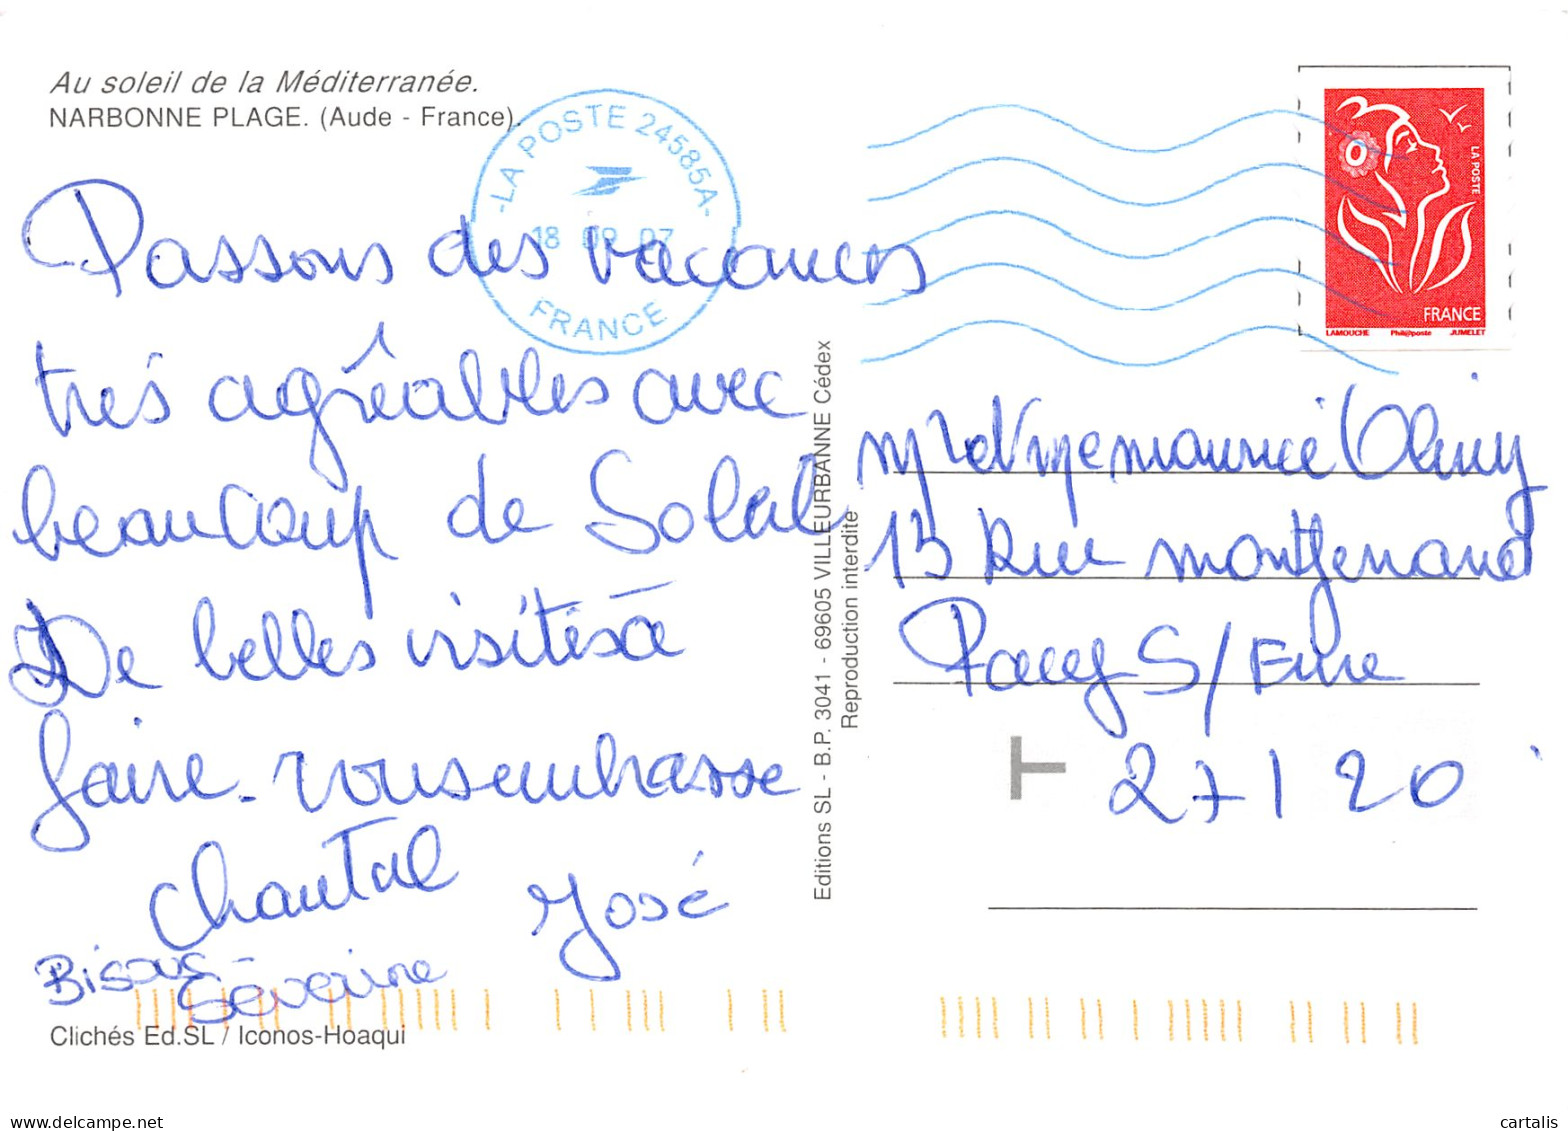 Au soleil de la Méditerranée.
NARBONNE PLAGE. (Aude - France).
-LA POSTE 24585A-
18 07
FRANCE
LA POSTE
FRANCE
LAMOUCHE Phil@poste JUMELET
Passons des vacances
très agréables avec
beaucoup de Soleil
De belles visites à
faire. vous embrasse
Chantal José
Bisous -
Séverine
Clichés Ed.SL / Iconos-Hoaqui
Editions SL - B.P. 3041 - 69605 VILLEURBANNE Cédex
Reproduction interdite
maurice
13 Rue
Pacy S/Eure
T
27120
cartalis